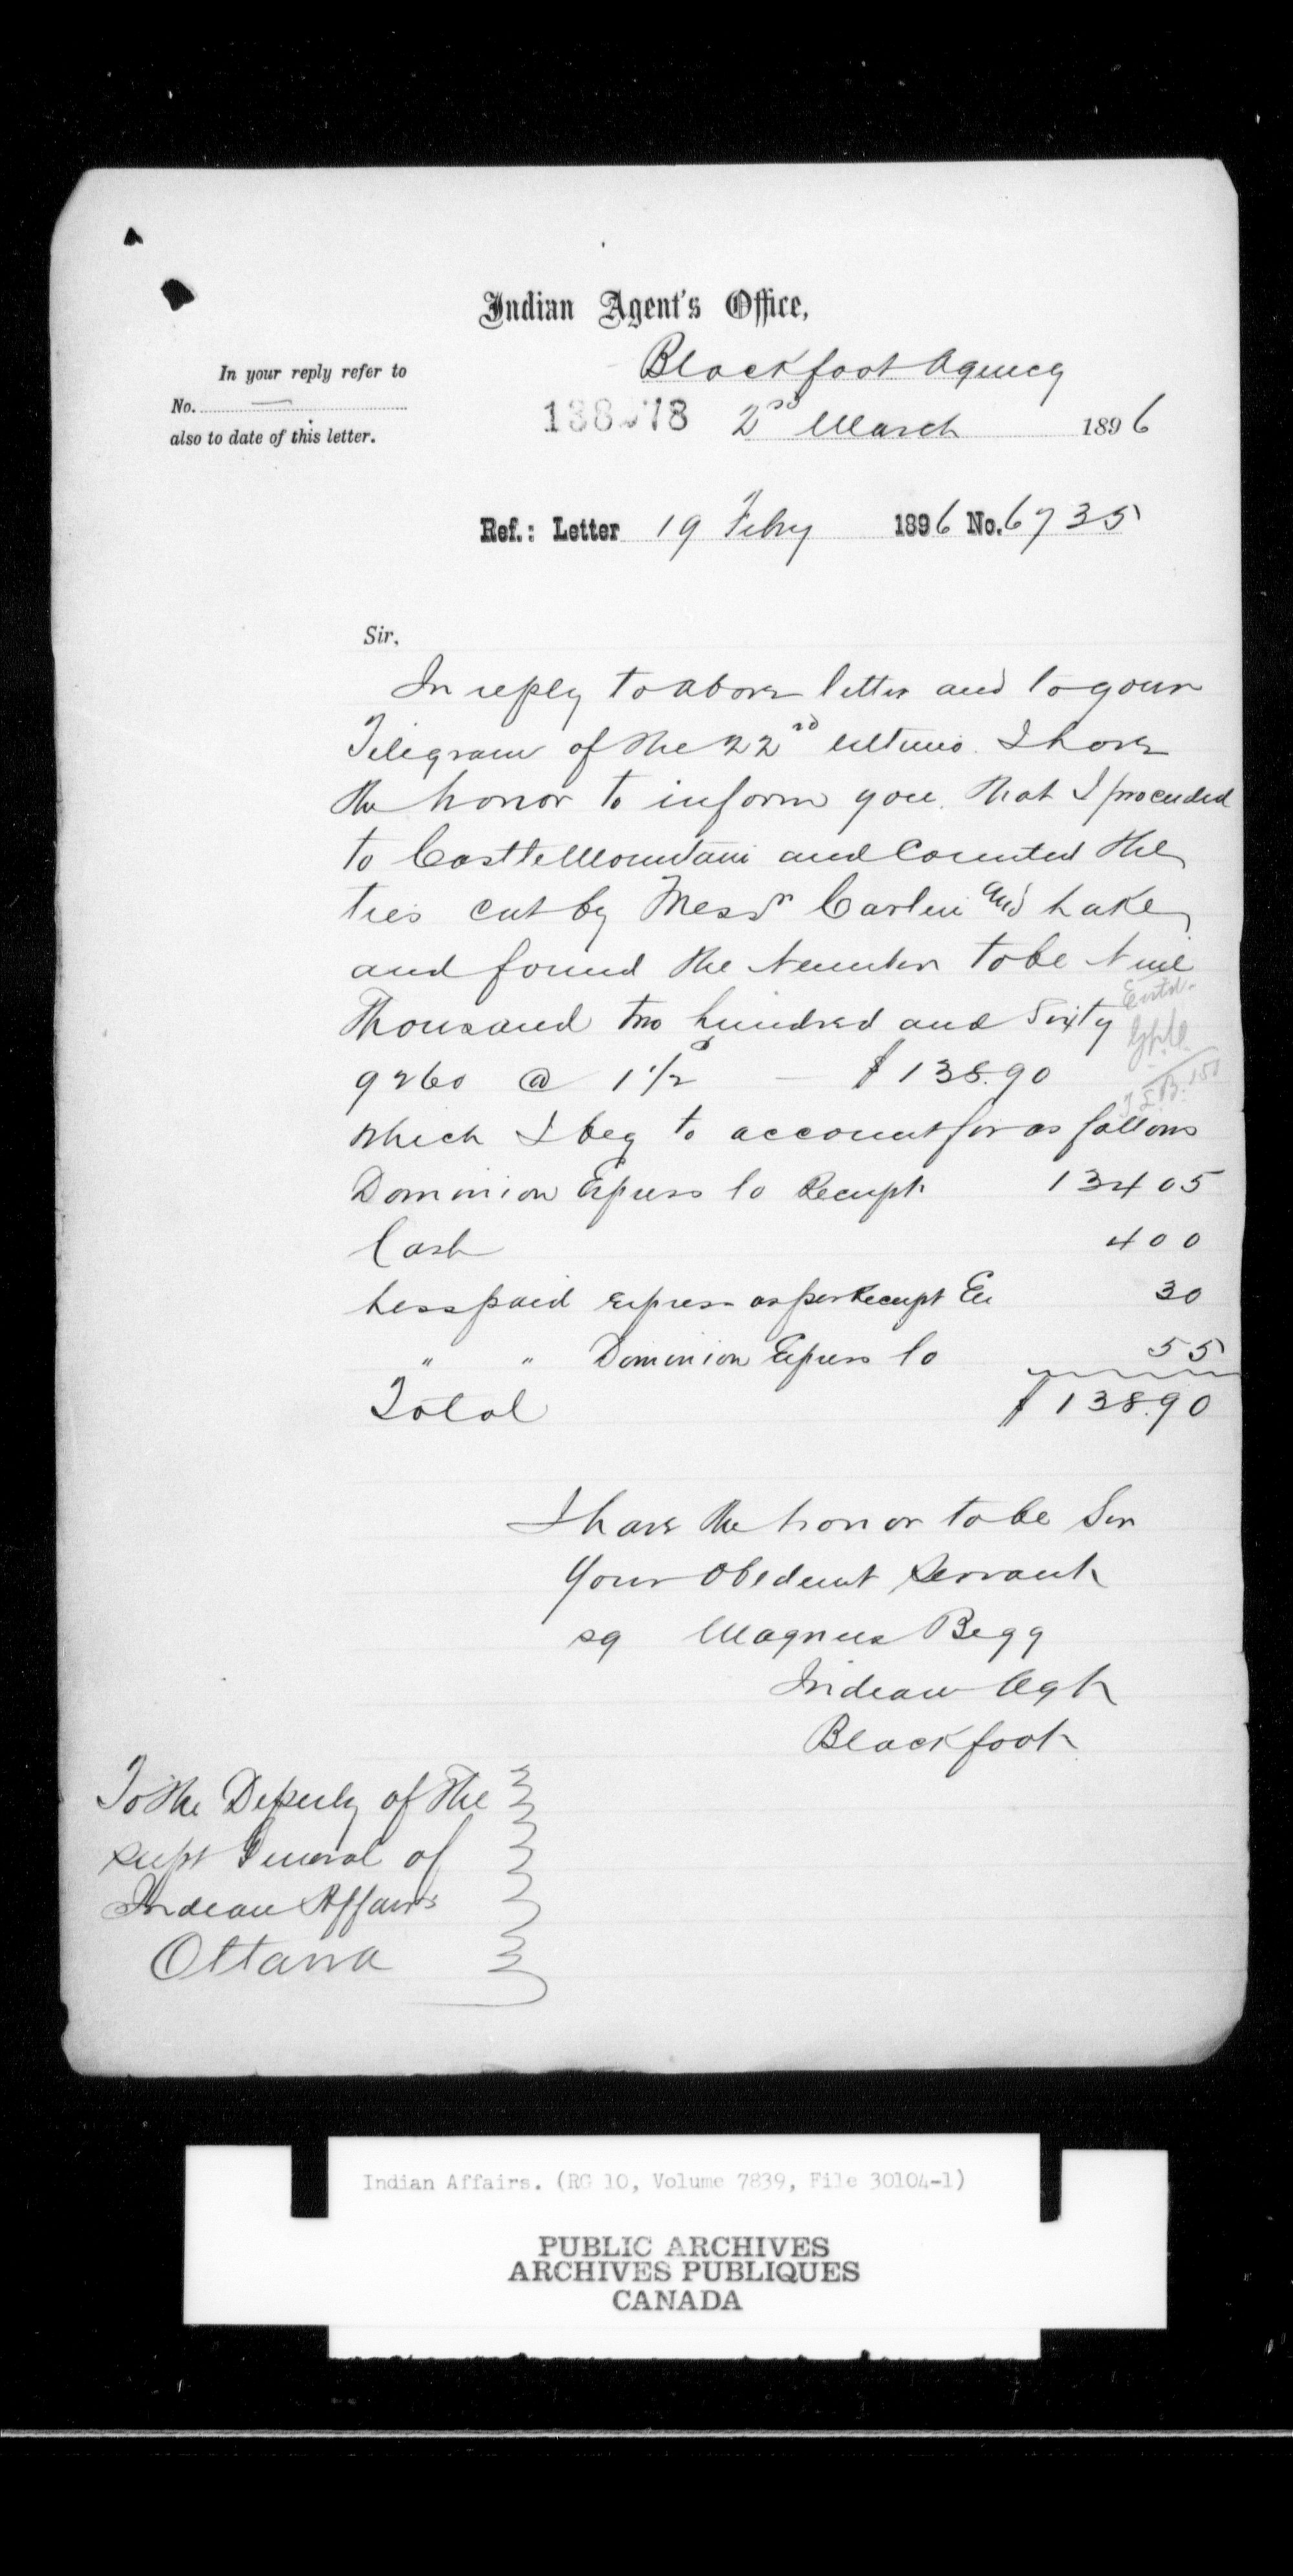 Indian Agent's Office,
Blackfoot Agency
In your reply refer to
No.
also to date of this letter.
2nd March 1896
Ref.: Letter 19 Feby 1896 No. 6735
Sir,
In reply to above letter and to your
Telegram of the 22nd ultimo. I have
the honor to inform you, that I proceeded
to Castle Mountain and Counted the
ties cut by Messrs Carlin and Lake
and found the Number to be Nine
Thousand two hundred and Sixty
9260 @ 1 1/2 — $138.90
Which I beg to account for as follows
Dominion Express Co Receipt 134 05
Cash 4 00
Less paid express as per Receipt 30
" " Dominion Express Co 55
Total $138.90
I have the honor to be Sir
Your Obedient Servant
sg Magnus Begg
Indian Agt
Blackfoot
To the Deputy of the
Supt General of
Indian Affairs
Ottawa
Indian Affairs. (RG 10, Volume 7839, File 30104-1)
PUBLIC ARCHIVES
ARCHIVES PUBLIQUES
CANADA